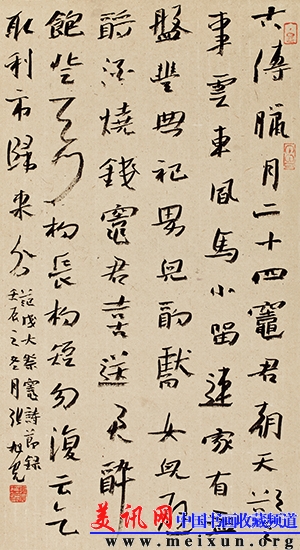 古傳臘月二十四竈君朝天欲言
事雲車風馬小留連家有杯
盤豐典祀男兒酌獻女兒避
酹酒燒錢竈君喜送君醉
飽登天門杓長杓短勿復云乞
取利市歸來分
范成大祭竈詩節錄
壬辰之冬月張旭光
美讯网
中国书画收藏频道
www.meixun.org